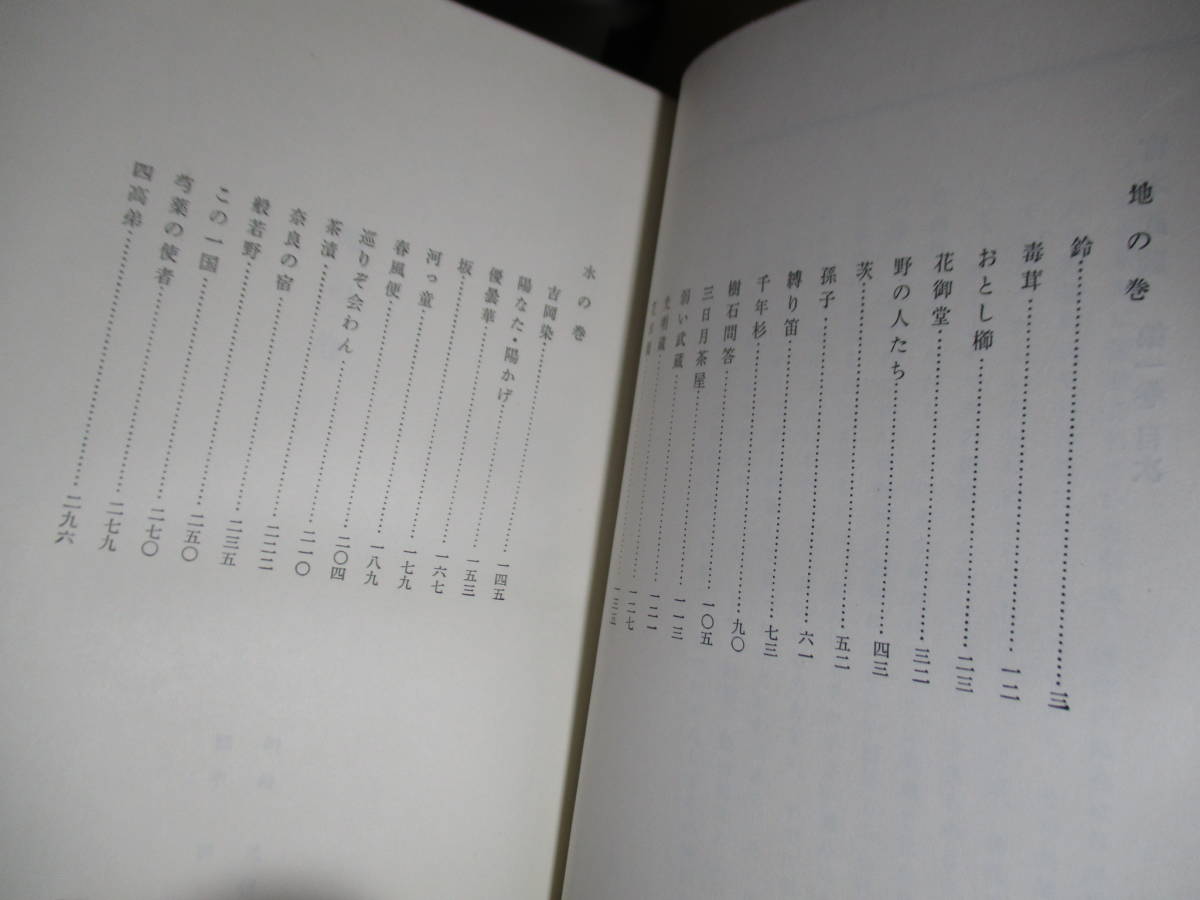 地の巻
鈴……三
毒茸……一二
おとし櫛……二三
花御堂……三二
野の人たち……四三
茨……五二
孫子……六一
縛り笛……七三
千年杉……九〇
樹石問答……一〇五
三日月茶屋……一一三
弱い武蔵……一二一
光明蔵……一二七
水の巻
吉岡染……一四五
陽なた・陽かげ……一五三
優曇華……一六七
坂……一七九
河っ童……一八九
春風便……二〇四
巡りぞ会わん……二一〇
茶漬……二二二
奈良の宿……二三五
般若野……二五〇
この一国……二七〇
芍薬の使者……二七九
四高弟……二九六